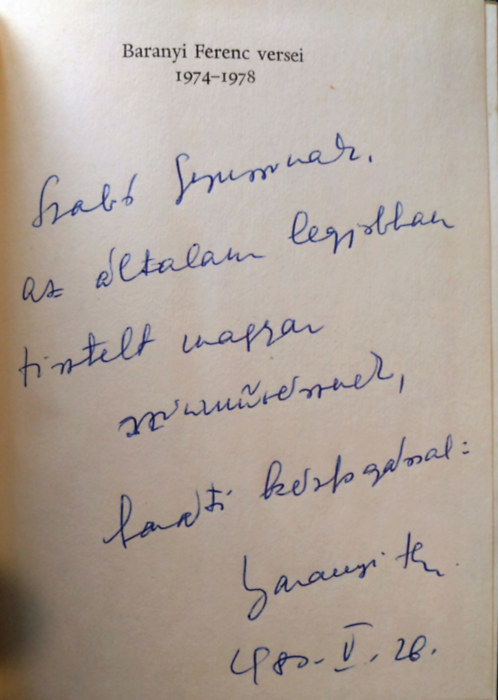 Baranyi Ferenc versei
1974–1978
Szabó Gyuszinak,
az általam legjobban
tisztelt magyar
színművésznek,
baráti kézfogással:
Baranyi F.
1980. V. 28.